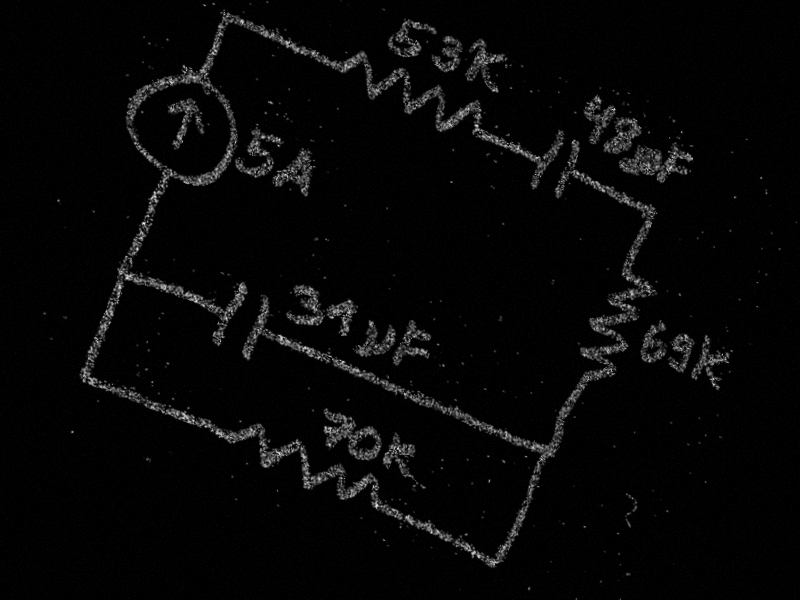 53K
48µF
5A
31µF
69K
70K